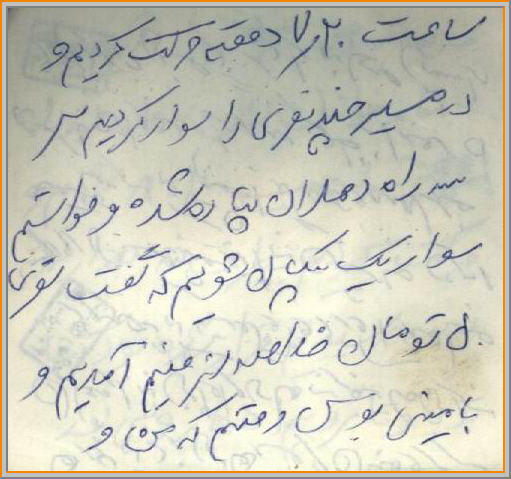 ساعت ۷/۲۰ دقیقه حرکت کردیم و
در مسیر چند نفری را سوار کردیم سر
سه راه دهلران پیاده شده و خواستیم
سوار یک پیکاپ شویم که گفت نفری
۵۰ تومان آمدیم و
با مینی بوس رفتیم که من و